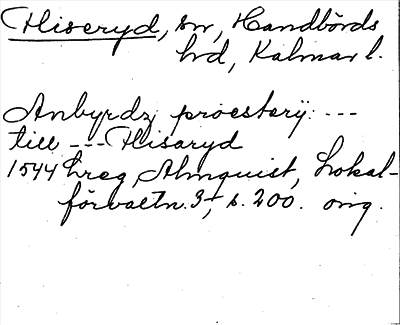 Hiseryd, sn, Handbörds
hd, Kalmar l.
Anbyrdz proesterij ---
till --- Hisaryd
1544 hreg Almquist, Lokal-
förvaltn. 3, s. 200. orig.